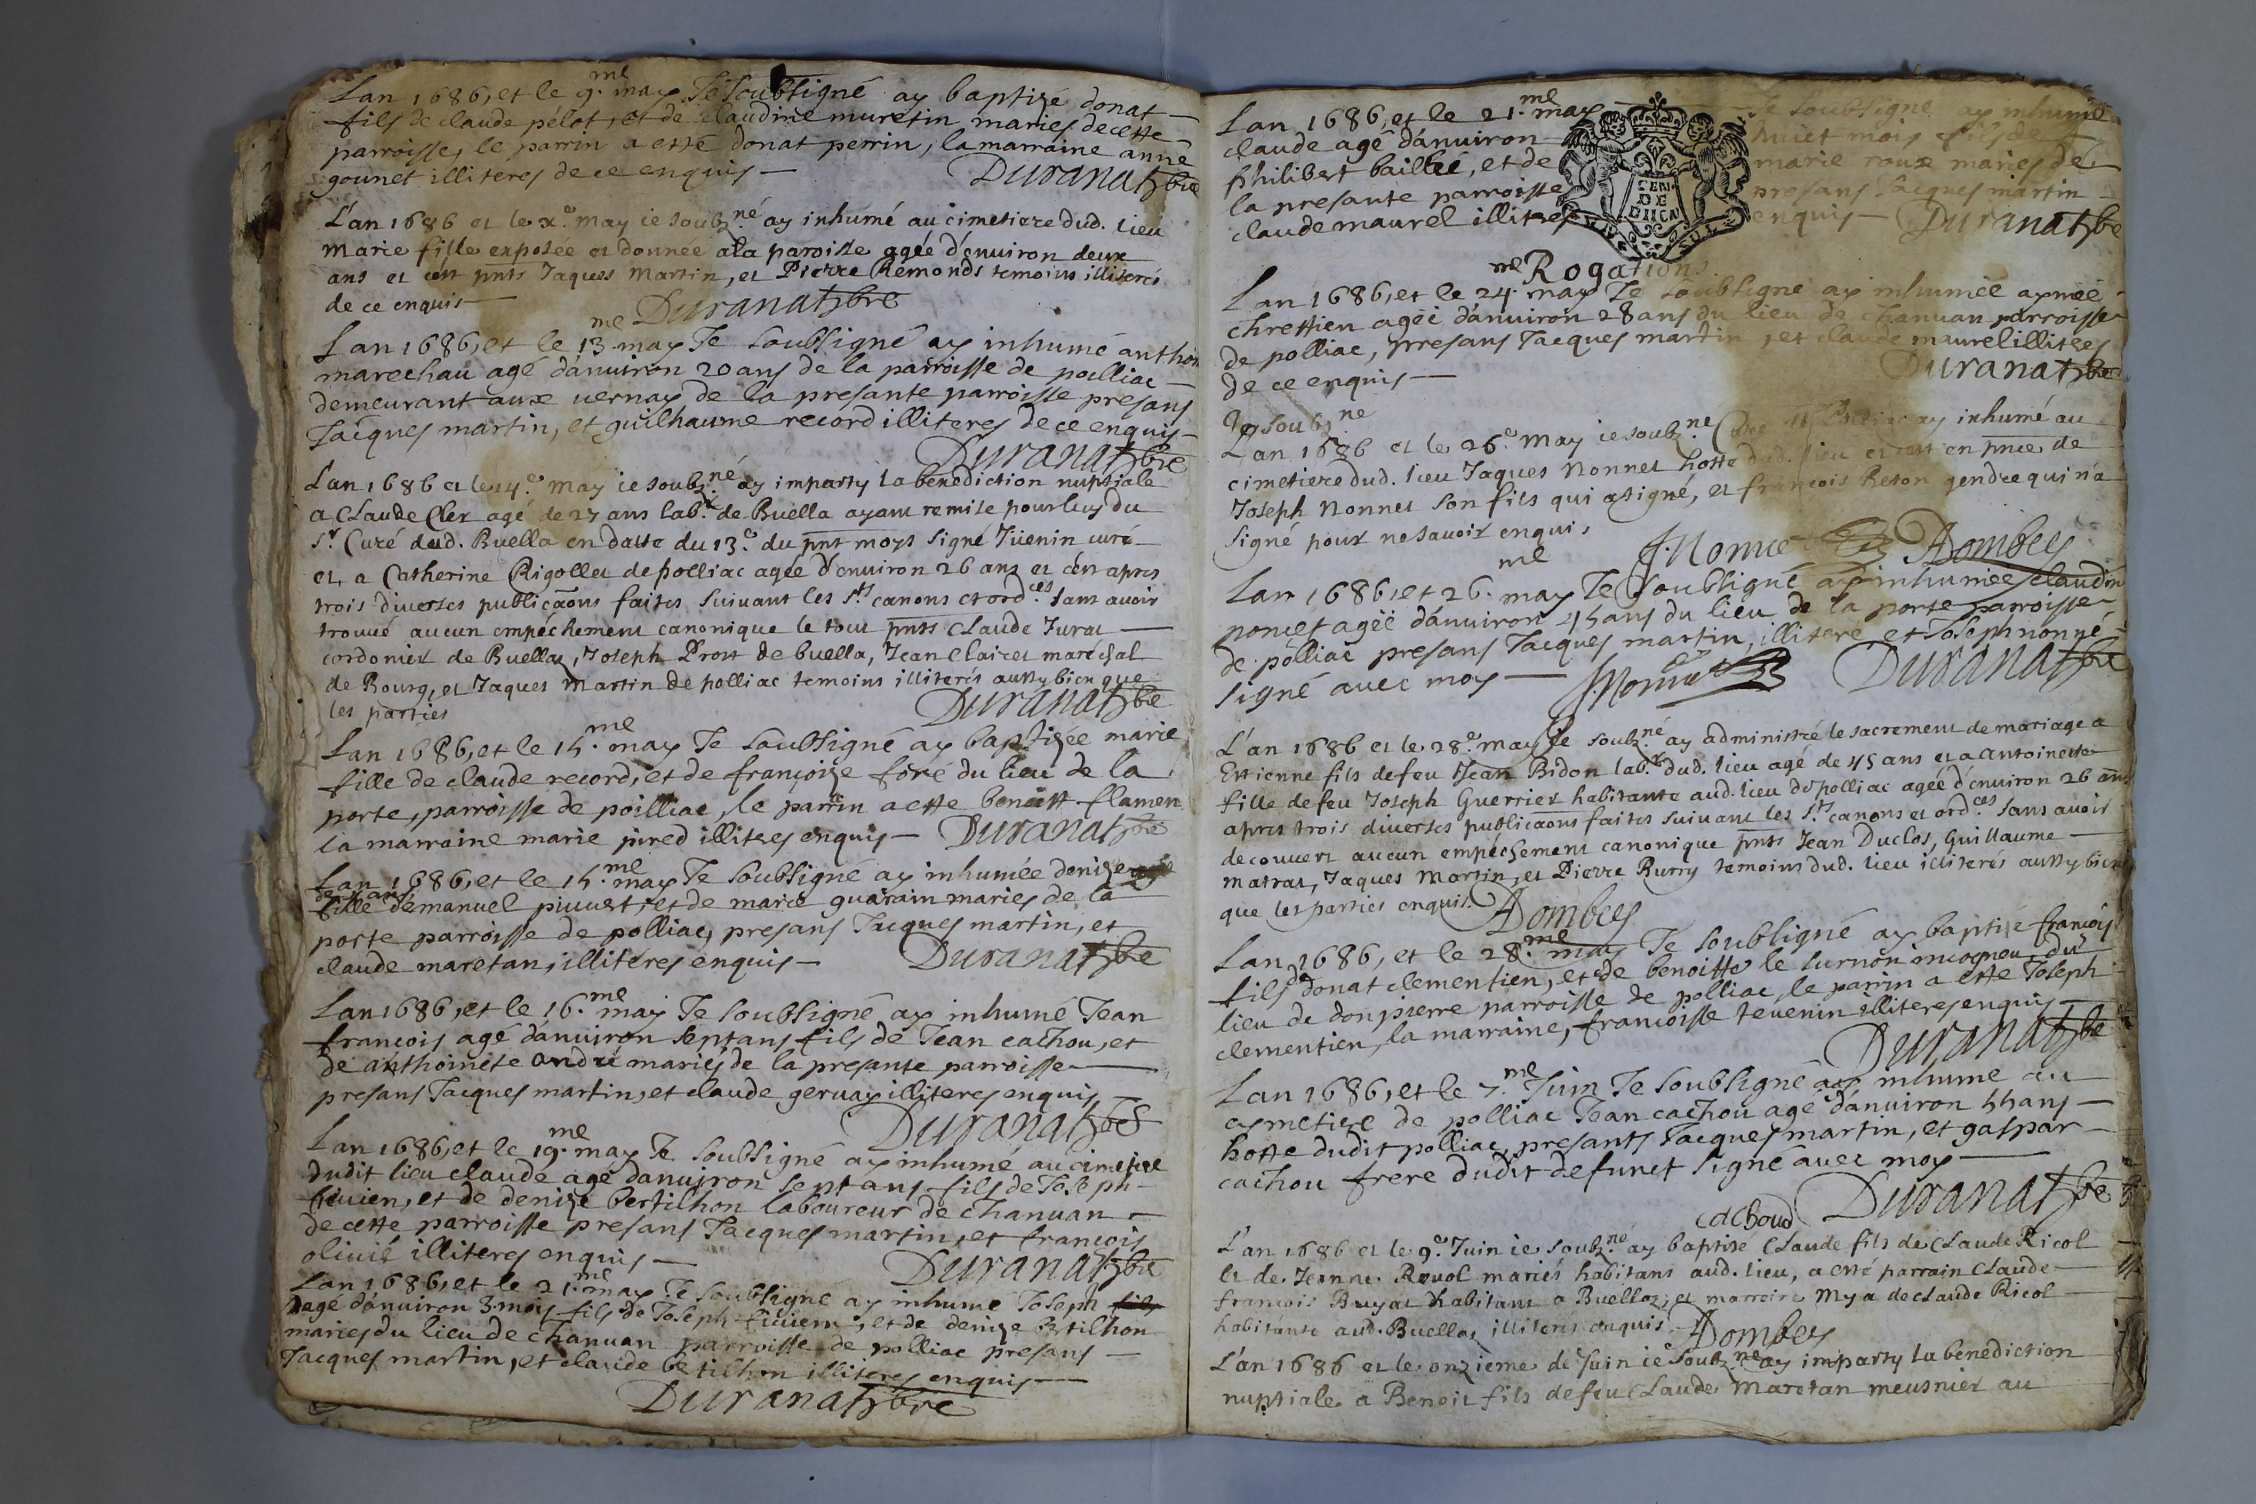 Lan 1686, et le 9.me may Je Soubsigné ay baptizé donat
fils de claude pelot, et de claudine muretin mariés de cette
parroisse, le parrin a esté donat perrin, la marraine anne
gounet illiteres de ce enquis — Duranat pbre
L'an 1686 et le x.e may ie soubz.né ay inhumé au cimetiere dud. lieu
Marie fille exposée et donnée a la paroisse agée d'enuiron deux
ans et ce pnts Jaques Martin, et Pierre Remonds temoins illiterés
de ce enquis — Duranat pbre
Lan 1686, et le 13.me may Je Soubsigné ay inhumé anthoi
marechau agé dánuiron 20 ans de la parroisse de poilliac —
demeurant aux uernay de la presante parroisse presans
Jacques martin, et guilhaume record illiteres de ce enquis —
Duranat pbre
L'an 1686 et le 14.e may ie soubz.né ay imparty la benediction nuptiale
a Claude Cler agé de 27 ans lab.r de Buella ayant remise pour luy du
Sr Curé dud. Buella en datte du 13.e du pnt moys signé Juenin curé
et a Catherine Rigollet de polliac agée d'enuiron 26 ans et ce apres
trois diuerses publicãons faites suiuant les Sts canons et ord.ces sans avoir
trouué aucun empéchement canonique le tout pnts Claude Jurat —
cordonier de Buellaz, Joseph Prost de buella, Jean Clairet maréchal
de Bourg, et Jaques Martin de polliac temoins illiterés aussy bien que
les parties Duranat pbre
Lan 1686, et le 15.me may Je Soubsigné ay baptizée marie
fille de claude record, et de françoize foré du lieu de la
porte, parroisse de poilliac, le parrin a esté benoistt flamen
la marraine marie pired illiteres enquis — Duranat pbre
Lan 1686, et le 15.me may Je Soubsigné ay inhumée denize
fille demanuel piuuert, et de marie guarain mariés de la
porte parroisse de polliac, presans Jacques martin, et
claude maretan, illitéres enquis — Duranat pbre
Lan 1686, et le 16.me may Je Soubsigné ay inhumé Jean
françois agé danuiron septans fils de Jean cathou, et
de anthoinete andré mariés de la presante parroisse —
presans Jacques martin, et claude geruay illiteres enquis —
Duranat pbre
Lan 1686, et le 19.me may Je Soubsigné ay inhumé au cimetiere
dudit lieu claude agé danuiron sept ans fils de Joseph
fiuien, et de denize bertilhon laboureur de chanuan —
de cette parroisse presans Jacques martin, et françois
oliuié illiteres enquis — Duranat pbre
Lan 1686, et le 21.me may Je Soubsigné ay inhumé Joseph fils
agé dánuiron 3 mois fils de Joseph fiuiem, et de denize bertilhon
mariés du lieu de chanuan parroisse de polliac presans —
Jacques martin, et claude betilhon illiteres enquis —
Duranat pbre
Lan 1686, et le 21.me may — Je Soubsigné ay inhumé
claude agé dánuiron huict mois fils de
philibert baillée, et de marie roux mariés de
la presante parroisse presans Jacques martin
claude maurel illiteres enquis — Duranat pbre
GEN DE DIION
Rogations
Lan 1686, et le 24.me may Je Soubsigné ay inhumée aymée
chrestien agée dánuiron 28 ans du lieu de chanuan parroisse
de polliac, presans Jacques martin, et claude maurel illiteres
de ce enquis — Duranat pbre
Je soubz.ne
L'an 1686 et le 26.e May ie soubz.ne Curé ay inhumé au
cimetiere dud. lieu Jaques Nonnet hoste dud. lieu et ce en pnce de
Joseph Nonnet son fils qui a signé, et françois Reton gendre qui n'a
signé pour ne sauoir enquis
J. Nonnet Dombey
Lan 1686, et 26.me may Je Soubsigné ay inhumée claudin
poncet agée dánuiron 45 ans du lieu de la porte parroisse
de polliac presans Jacques martin, illiteré et Joseph nonné
signé avec moy — J. Nonnet Duranat pbre
L'an 1686 et le 28.e may ie soubz.né ay administré le sacrement de mariage a
Estienne fils de feu Jean Bidon lab.r dud. lieu agé de 45 ans et a Antoinette
fille de feu Joseph Guerrier habitante aud. lieu de polliac agée d'enuiron 26 ans
apres trois diuerses publicãons faites suiuant les Sts canons et ord.ces sans auoir
decouuert aucun empéchement canonique pnts Jean Duclos, Guillaume —
Matrat, Jaques Martin, et Pierre Rurry temoins dud. lieu illiterés aussy bien
que les parties enquis. Dombey
Lan 1686, et le 28.me may Je Soubsigné ay baptizé françois
fils donat clementien, et de benoitte le surnon incogneu du
lieu de donpierre parroisse de polliac, le parrin a esté Joseph
clementien, la marraine, francoisse teuenin illiteres enquis —
Duranat pbre
Lan 1686, et le 7.me Juin Je Soubsigné ay inhumé au
cymetiere de polliac Jean cachou agé dánuiron 55 ans —
hoste dudit polliac, presants Jacques martin, et gaspar —
cachou frere dudit defunct signé avec moy —
Cachoud Duranat pbre
L'an 1686 et le 9.e Juin ie soubz.né ay baptisé Claude fils de Claude Ricol
et de Jeanne Reuol mariés habitans aud. lieu, a esté parrain Claude —
françois Bruyat habitant a Buellaz, et marreine Mya de claude Ricol —
habitante aud. Buellaz illiterés enquis. Dombey
L'an 1686 et le onzieme de Juin ie soubz.né ay imparty la benediction
nuptiale a Benoit fils de feu Claude Maretan meusnier au